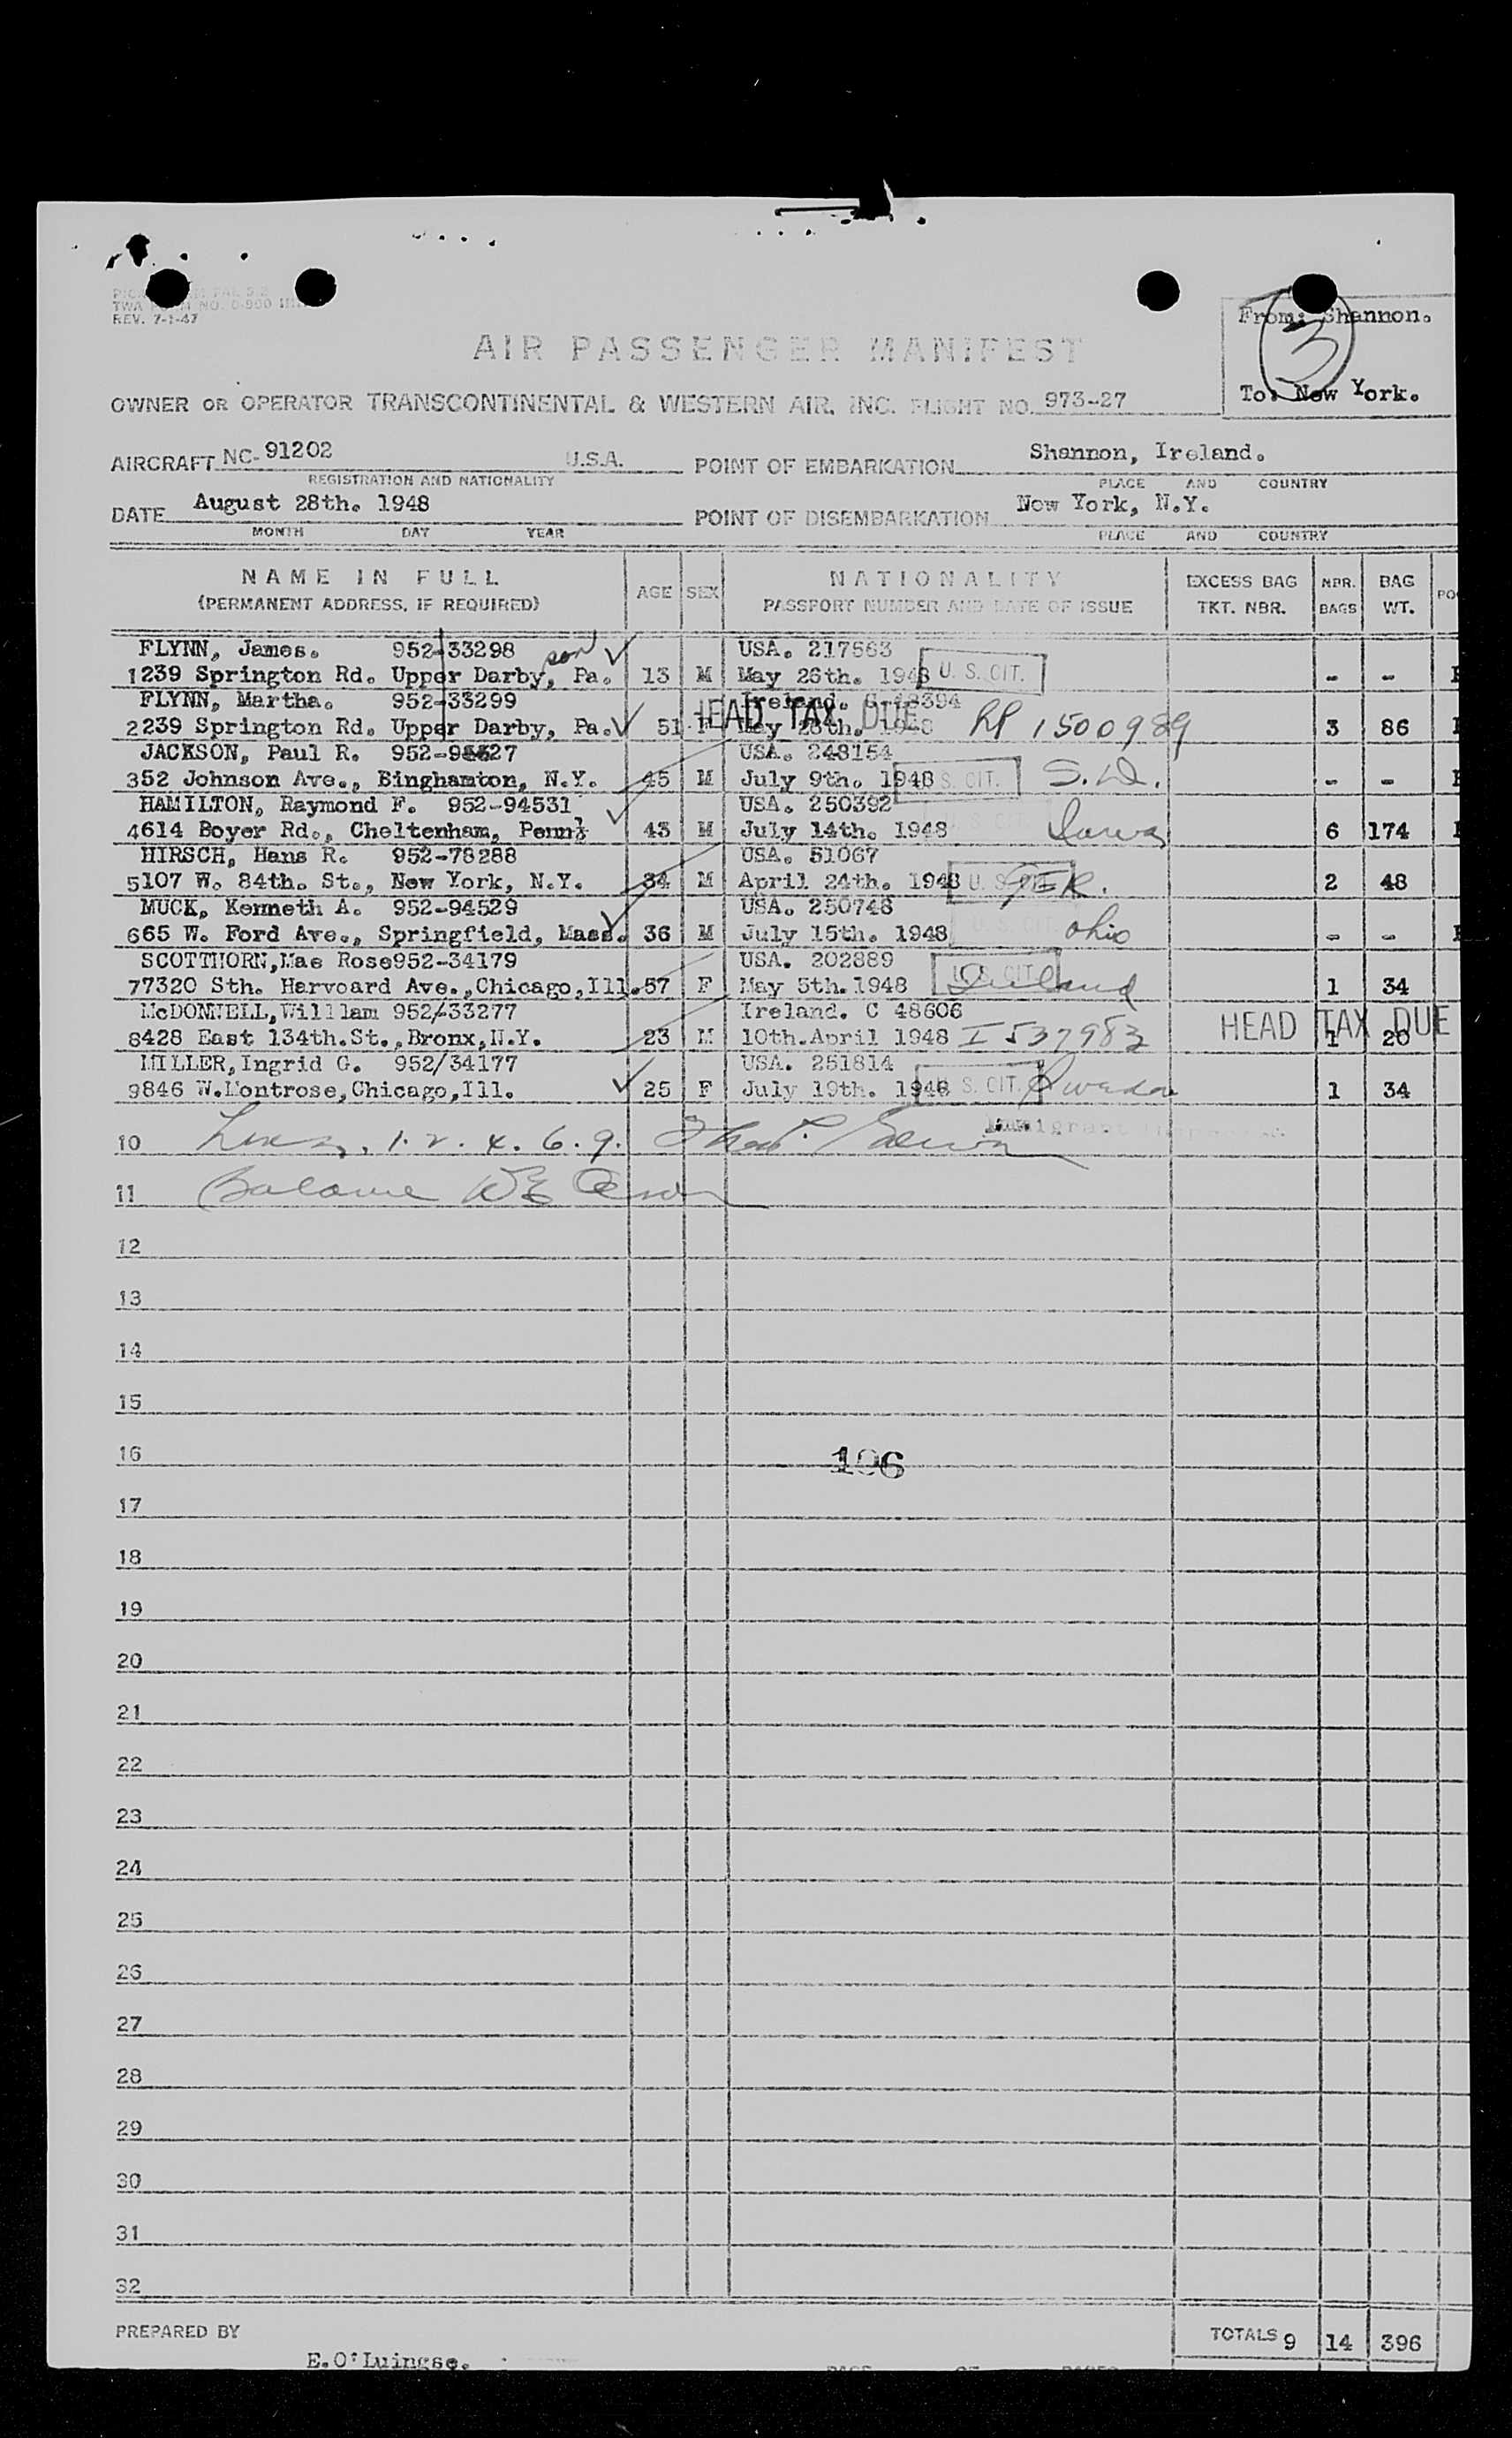 REV. 7-1-47
From: Shannon.
3
To: New York.
AIR PASSENGER MANIFEST
OWNER OR OPERATOR TRANSCONTINENTAL & WESTERN AIR, INC. FLIGHT NO. 973-27
AIRCRAFT NC- 91202 U.S.A. POINT OF EMBARKATION Shannon, Ireland.
REGISTRATION AND NATIONALITY PLACE AND COUNTRY
DATE August 28th. 1948 POINT OF DISEMBARKATION New York, N.Y.
MONTH DAY YEAR PLACE AND COUNTRY
NAME IN FULL AGE SEX NATIONALITY EXCESS BAG NBR. BAG
(PERMANENT ADDRESS, IF REQUIRED) PASSPORT NUMBER AND DATE OF ISSUE TKT. NBR. BAGS WT.
FLYNN, James. 952-33298 son USA. 217563
1 239 Springton Rd. Upper Darby, Pa. 13 M May 26th. 1948 U. S. CIT. - -
FLYNN, Martha. 952-33299 Ireland. C 48394
2 239 Springton Rd. Upper Darby, Pa. 51 F May 28th. 1948 HEAD TAX DUE RP 1500989 3 86
JACKSON, Paul R. USA. 248154
3 52 Johnson Ave., Binghamton, N.Y. 45 M July 9th. 1948 U. S. CIT. S.D. - -
HAMILTON, Raymond F. 952-94531 USA. 250392
4 614 Boyer Rd., Cheltenham, 43 M July 14th. 1948 U. S. CIT. Iowa 6 174
HIRSCH, Hans R. 952-78288 USA. 51067
5 107 W. 84th. St., New York, N.Y. 34 M April 24th. 1948 U. S. CIT. GER. 2 48
MUCK, Kenneth A. 952-94529 USA. 250748
6 65 W. Ford Ave., Springfield, Mass. 36 M July 15th. 1948 U. S. CIT. Ohio - -
SCOTTHORN,Mae Rose952-34179 USA. 202889
7 7320 Sth. Harvoard Ave.,Chicago,Ill. 57 F May 5th.1948 U. S. CIT. Ireland 1 34
McDONNELL,William 952/33277 Ireland. C 48606
8 428 East 134th.St.,Bronx,N.Y. 23 M 10th.April 1948 I 537983 HEAD TAX DUE 1 20
MILLER,Ingrid G. 952/34177 USA. 251814
9 846 W.Montrose,Chicago,Ill. 25 F July 19th. 1948 U. S. CIT. Sweden 1 34
10 Lines, 1. 2. 4. 6. 9.
11 Balance
12
13
14
15
16 106
17
18
19
20
21
22
23
24
25
26
27
28
29
30
31
32
PREPARED BY TOTALS 9 14 396
E.O'Luingse.